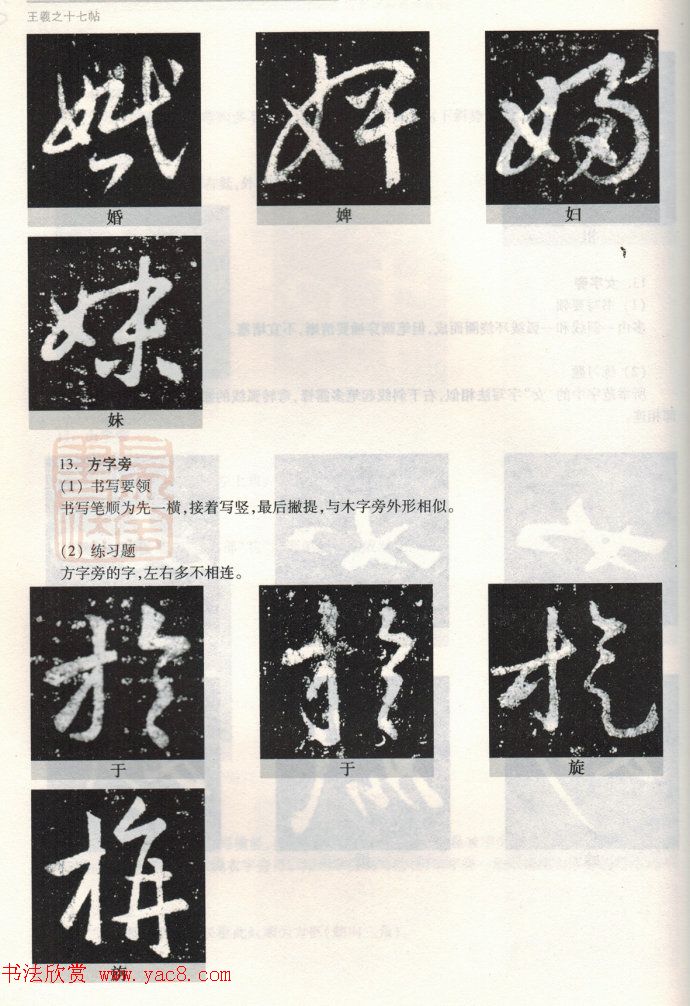 王羲之十七帖
婚
婢
妇
妹
13. 方字旁
(1) 书写要领
书写笔顺为先一横,接着写竖,最后撇提,与木字旁外形相似。
(2) 练习题
方字旁的字,左右多不相连。
于
于
旋
书法欣赏 www.yac8.com